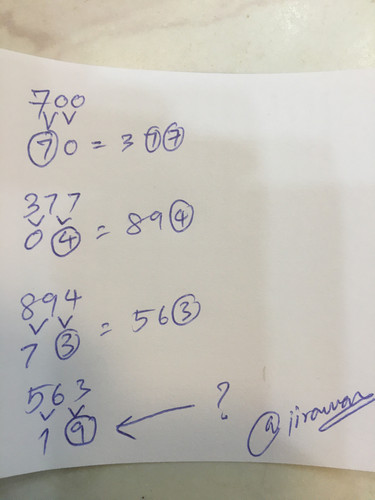 700
70 = 377
377
04 = 894
894
73 = 563
563
19 ← ?
@jirawan